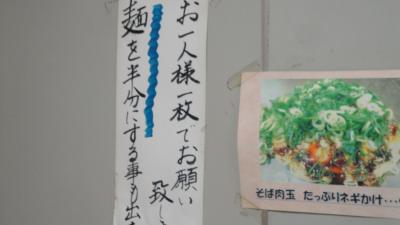 お一人様一枚でお願い
致し
麺を半分にする事も出
そば肉玉 たっぷりネギかけ...